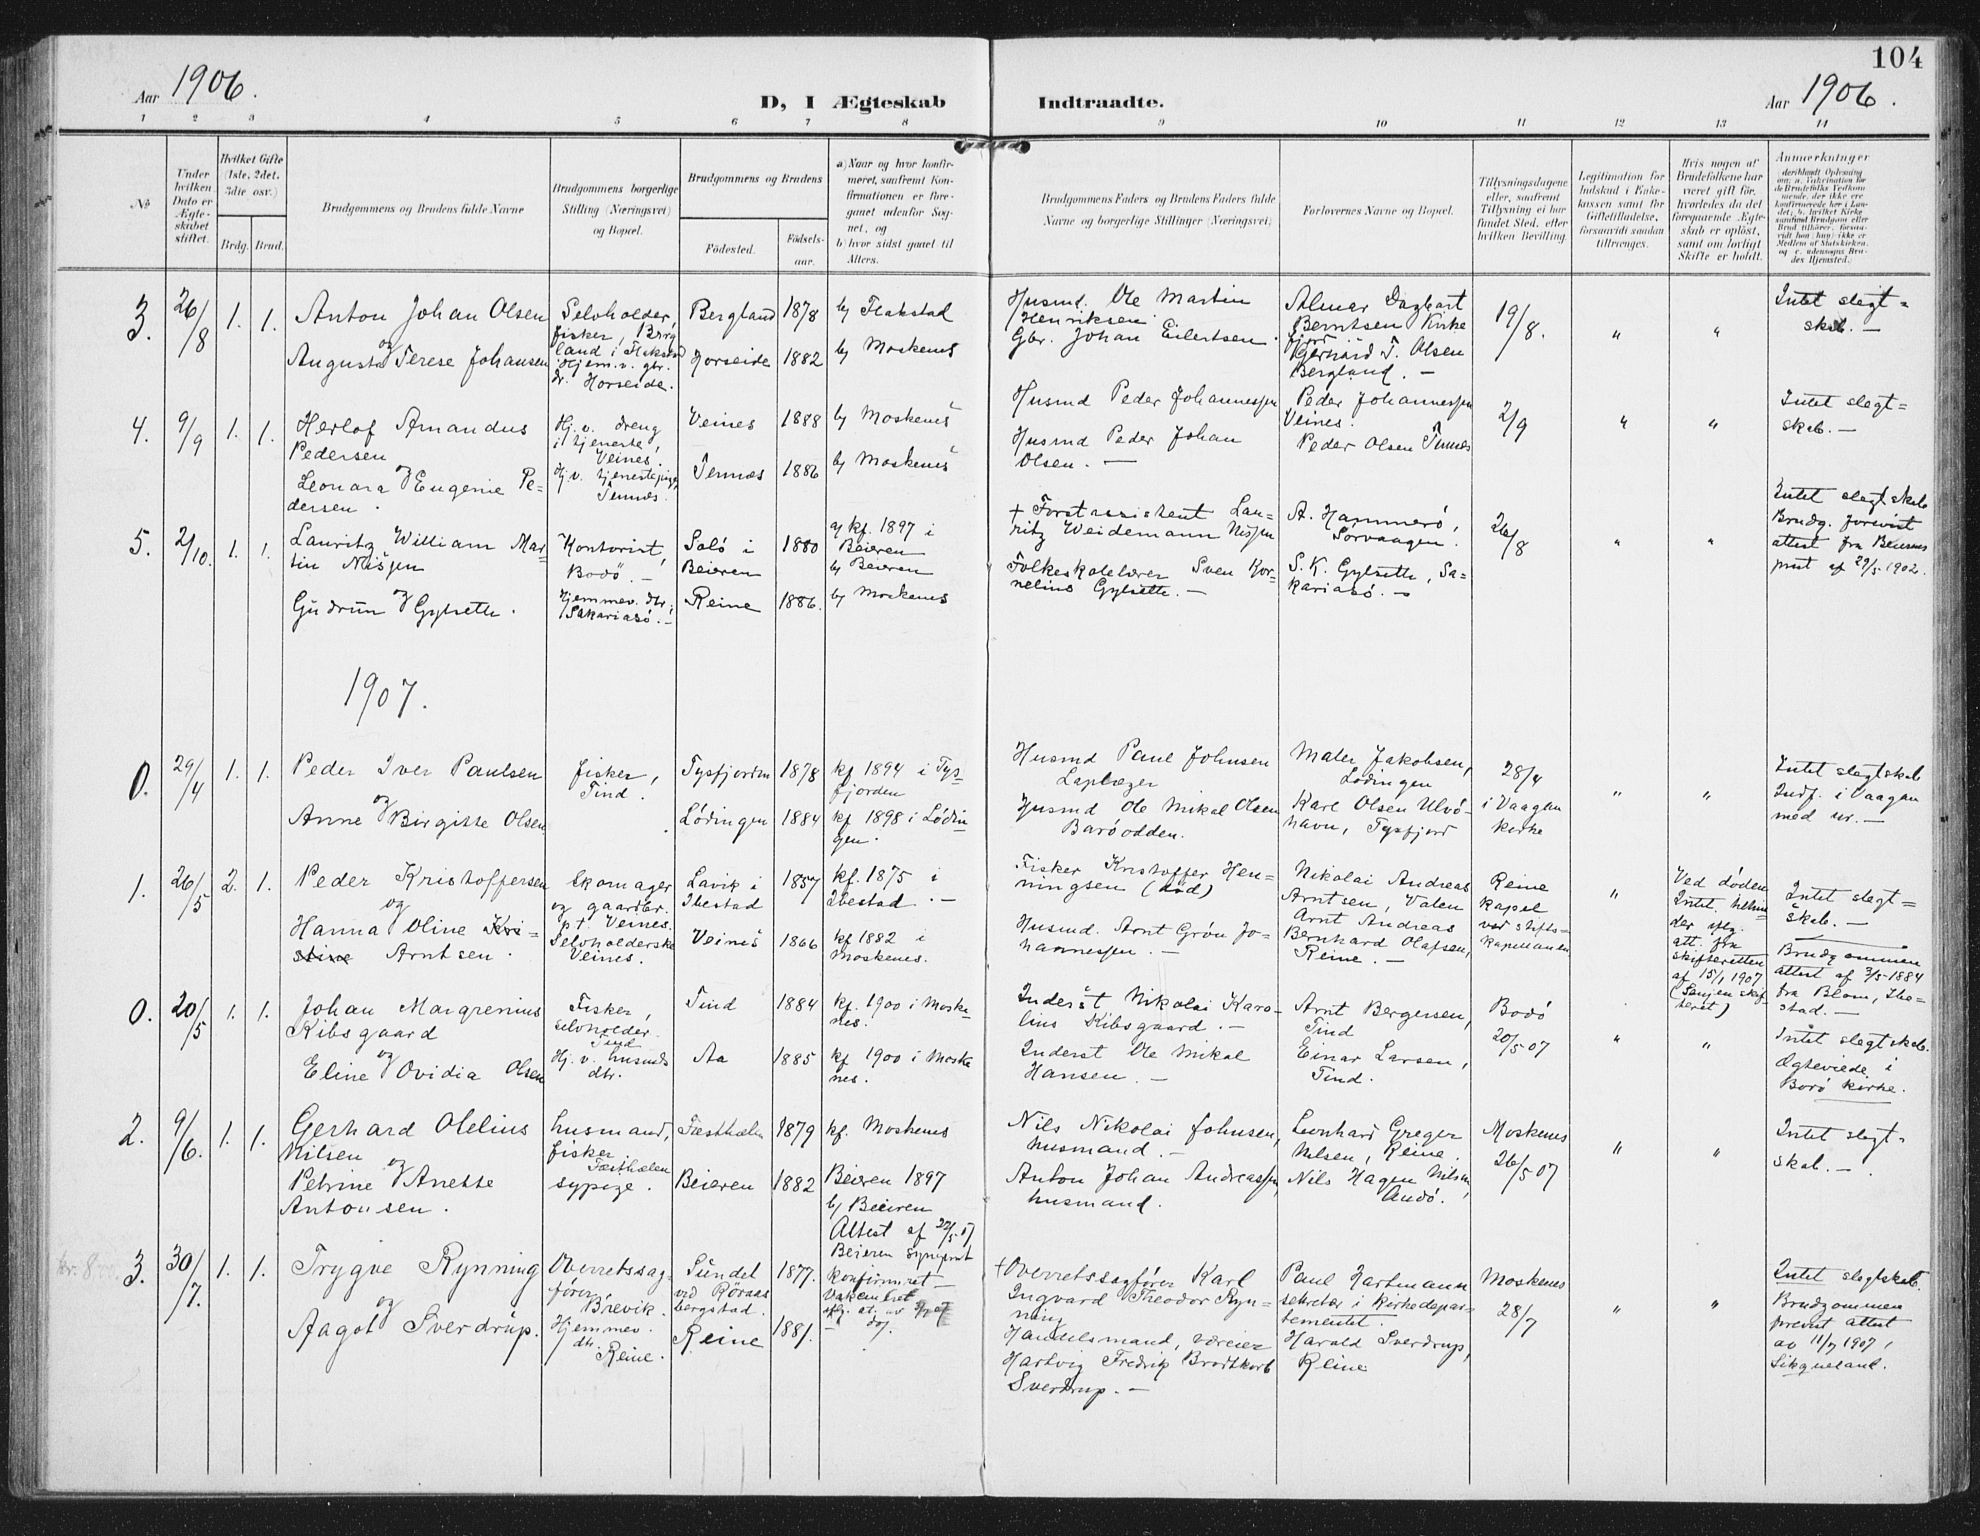 104
Aar 1906.
D, I Ægteskab Indtraadte.
Aar 1906.
1 2 3 4 5 6 7 8 9 10 11 12 13 14
No
Under hvilken Dato er Ægteskabet stiftet.
Hvilket Gifte (1ste, 2det, 3die osv.)
Brdg. Brud.
Brudgommens og Brudens fulde Navne
Brudgommens borgerlige Stilling (Næringsvei) og Bopæl.
Brudgommens og Brudens
Fødested. Fødselsaar.
a) Naar og hvor konfirmeret, saafremt Konfirmationen er foregaaet udenfor Sognet, og
b) hvor sidst gaaet til Alters.
Brudgommens Faders og Brudens Faders fulde Navne og borgerlige Stillinger (Næringsvei)
Forlovernes Navne og Bopæl.
Tillysningsdagene eller, saafremt Tillysning ei har fundet Sted, efter hvilken Bevilling.
Legitimation for Indskud i Enkekassen samt for Giftetilladelse, forsaavidt saadan tiltrænges.
Hvis nogen af Brudefolkene har været gift før, hvorledes da det foregaaende Ægteskab er opløst, samt om lovligt Skifte er holdt.
Anmærkninger
3. 26/8 1. 1.
Anton Johan Olsen
og
Augusta Terese Johansen
Selvholder,
fisker, Berg
land i Flakstad
Hjem.v. gbr.
dr. Horseide.
Bergland 1878 b) Flakstad
Horseide 1882 b) Moskenes
Husmd. Ole Martin
Henriksen
Gbr. Johan Eilertsen.
Almar Dagbart
Berntsen Kirke
fjord
Gerhard T. Olsen
Bergland. —
19/8. " "
Intet slegt=
skab. —
4. 9/9 1. 1.
Herlof Amandus
Pedersen
og
Leonara Eugenie Pe-
dersen.
Hj. v. dreng
i tjeneste,
Veines.
Hj.v. tjenestepige,
Tennes.
Veines 1888 b) Moskenes
Tennes 1886 b) Moskenes
Husmd Peder Johannessen
Husmd Peder Johan
Olsen. —
Peder Johannessen
Veines.
Peder Olsen Tennes
2/9 " "
Intet slegt=
skab. —
5. 2/10. 1. 1.
Lauritz William Mar-
tin Nissen
og
Gudrun Gylseth.
Kontorist,
Bodö. —
Hjemmev. dtr,
Sakariasö. —
Solö i
Beieren
1880
a) kf. 1897 i
Beieren
b) Beieren
Reine 1886. b) Moskenes
+ Forstassistent Lau-
ritz Weidemann Nissen
Folkeskolelærer Sven Kor-
nelius Gylseth. —
A. Hammerö,
Sörvaagen.
S.K. Gylseth, Sa-
kariasö. —
26/8 " "
Intet slegtskab
Brudg. forevist
attest fra Beierens
prest af 29/5 1902.
1907.
0. 29/4 1. 1.
Peder Iver Paulsen
og
Anne Birgitte Olsen
fisker,
Tind.
Tysfjorden 1878 kf 1894 i Tys-
fjorden
Lödingen 1884 kf 1898 i Lödin-
gen.
Husmd Paul Johnsen
Husmd Ole Mikal Olsen
Baröodden.
Jakobsen,
Lödingen
Karl Olsen Ulvö-
havn, Tysfjord
28/4
i Vaagan
kirke
" "
Intet slegtskab
Indf. i Vaagan
med nr. —
1. 26/5 2. 1.
Peder Kristoffersen
og
Hanna Oline Kri-
stine Arntsen.
Skomager
og gaardbr.
pt Veines.
Selvholderske
Veines.
Lavik i
Ibestad
1857 kf. 1875 i
Ibestad. —
Veines 1866 kf 1882 i
Moskenes.
Fisker Kristoffer Hen-
ningsen (död)
Husmd. Arnt Grön Jo-
hannessen. —
Nikolai Andreas
Arntsen, Valen
Arnt Andreas
Bernhard Olafsen,
Reine. —
Reine
kapel
ved stifts-
kapellanen
"
Ved döden
Intet
att. fra
skifteretten
af 15/1 1907
(Senjen skif-
teret)
Intet slegt=
skab. —
Brudgommen
attest af 3/5-1884
fra Blom, Ibe-
stad. —
0. 20/5 1. 1.
Johan Margrenius
Kibsgaard
og
Eline Ovidia Olsen
Fisker,
selvholder.
Tind
Hj. v. husmds
dtr.
Tind 1884 kf. 1900 i Moske-
nes.
Aa 1885 kf 1900 i Moske
nes.
Inderst Nikolai Karo-
lius Kibsgaard. —
Inderst Ole Mikal
Hansen. —
Arnt Bergersen,
Tind
Einar Larsen,
Tind.
Bodö
20/5 07
" "
Intet slegtskab.
Ægteviede i
Bodö kirke.
2. 9/6. 1. 1.
Gerhard Olelius
Nilsen
og
Petrine Anette
Antonsen.
husmand,
fisker
Festhælen
sypige.
Festhælen 1879 kf. Moskenes
Beieren 1882 Beieren 1897
b) Beieren
Attest af 22/5 07
Beieren sognepræst
Nils Nikolai Johnsen,
husmand. —
Anton Johan Andreassen,
husmand.
Leonhard Greger
Nilsen, Reine.
Nils Hagen Nilsen,
Andö.
Moskenes
26/5 07
" "
Intet slegt-
skab. —
3. 30/7. 1. 1.
Trygve Rynning
og
Aagot Sverdrup.
Overretssag-
förer,
Brevik.
Hjemmev.
dtr.
Reine.
Sundet
ved Röraas
bergstad.
1877. konfirmeret —
Reine 1881.
+ Overretssagförer Karl
Ingvard Theodor Ryn-
ning
Handelsmand, væreier
Hartvig Fredrik Brodtkorb
Sverdrup. —
Paul Hartmann
sekretær i kirkedepar-
tementet.
Harald Sverdrup,
Reine
Moskenes
28/7
" "
Intet slegtskab.
Brudgommen
previst attest
av 11/7 1907,